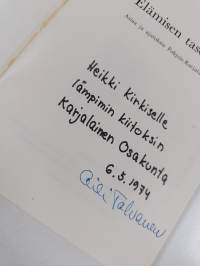 Elämisen taso
Heikki Kirkiselle
lämpimin kiitoksin
Karjalainen Osakunta
6.5.1974
Talvanen